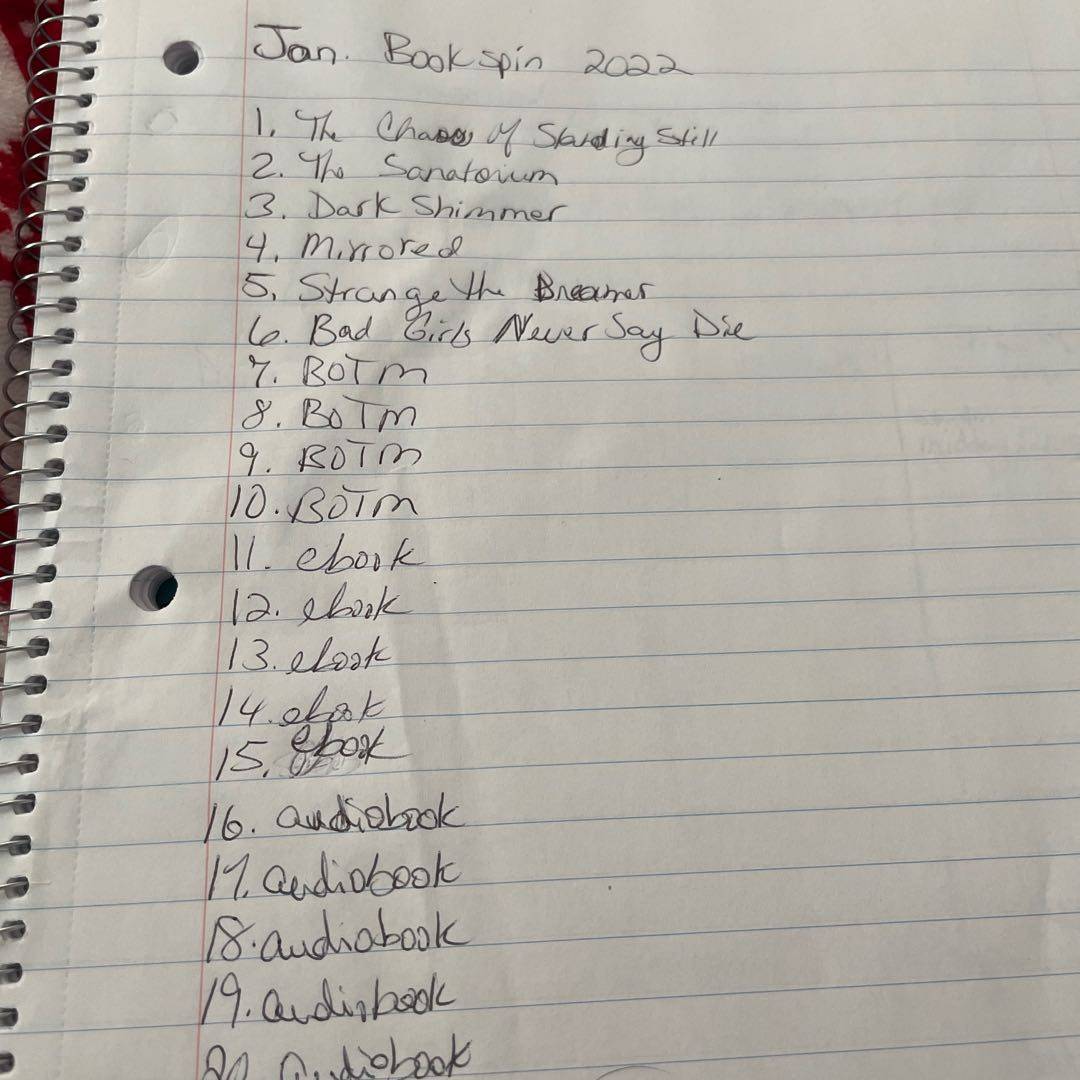 Jan. Bookspin 2022
1. The Chaos of Standing Still
2. The Sanatorium
3. Dark Shimmer
4. Mirrored
5. Strange the Dreamer
6. Bad Girls Never Say Die
7. BOTM
8. BOTM
9. BOTM
10. BOTM
11. ebook
12. ebook
13. ebook
14. ebook
15. ebook
16. audiobook
17. audiobook
18. audiobook
19. audiobook
20. audiobook